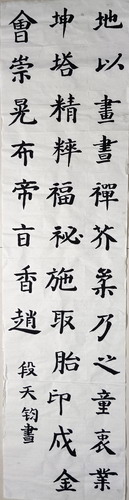 地以畫畫禪芥氣乃之童衷業
坤塔精粹福祕施取胎印成金
會崇晃布帝盲香趙
段天鈞書